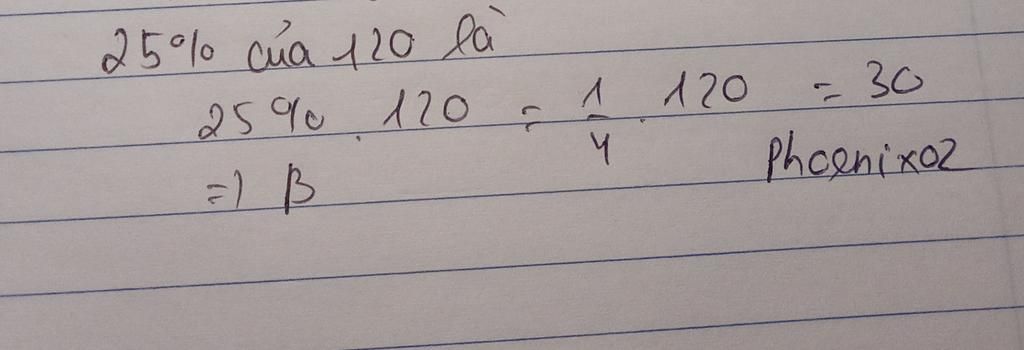 25% của 120 là
25% . 120 = 1/4 . 120 = 30
Phoenix02
=) B